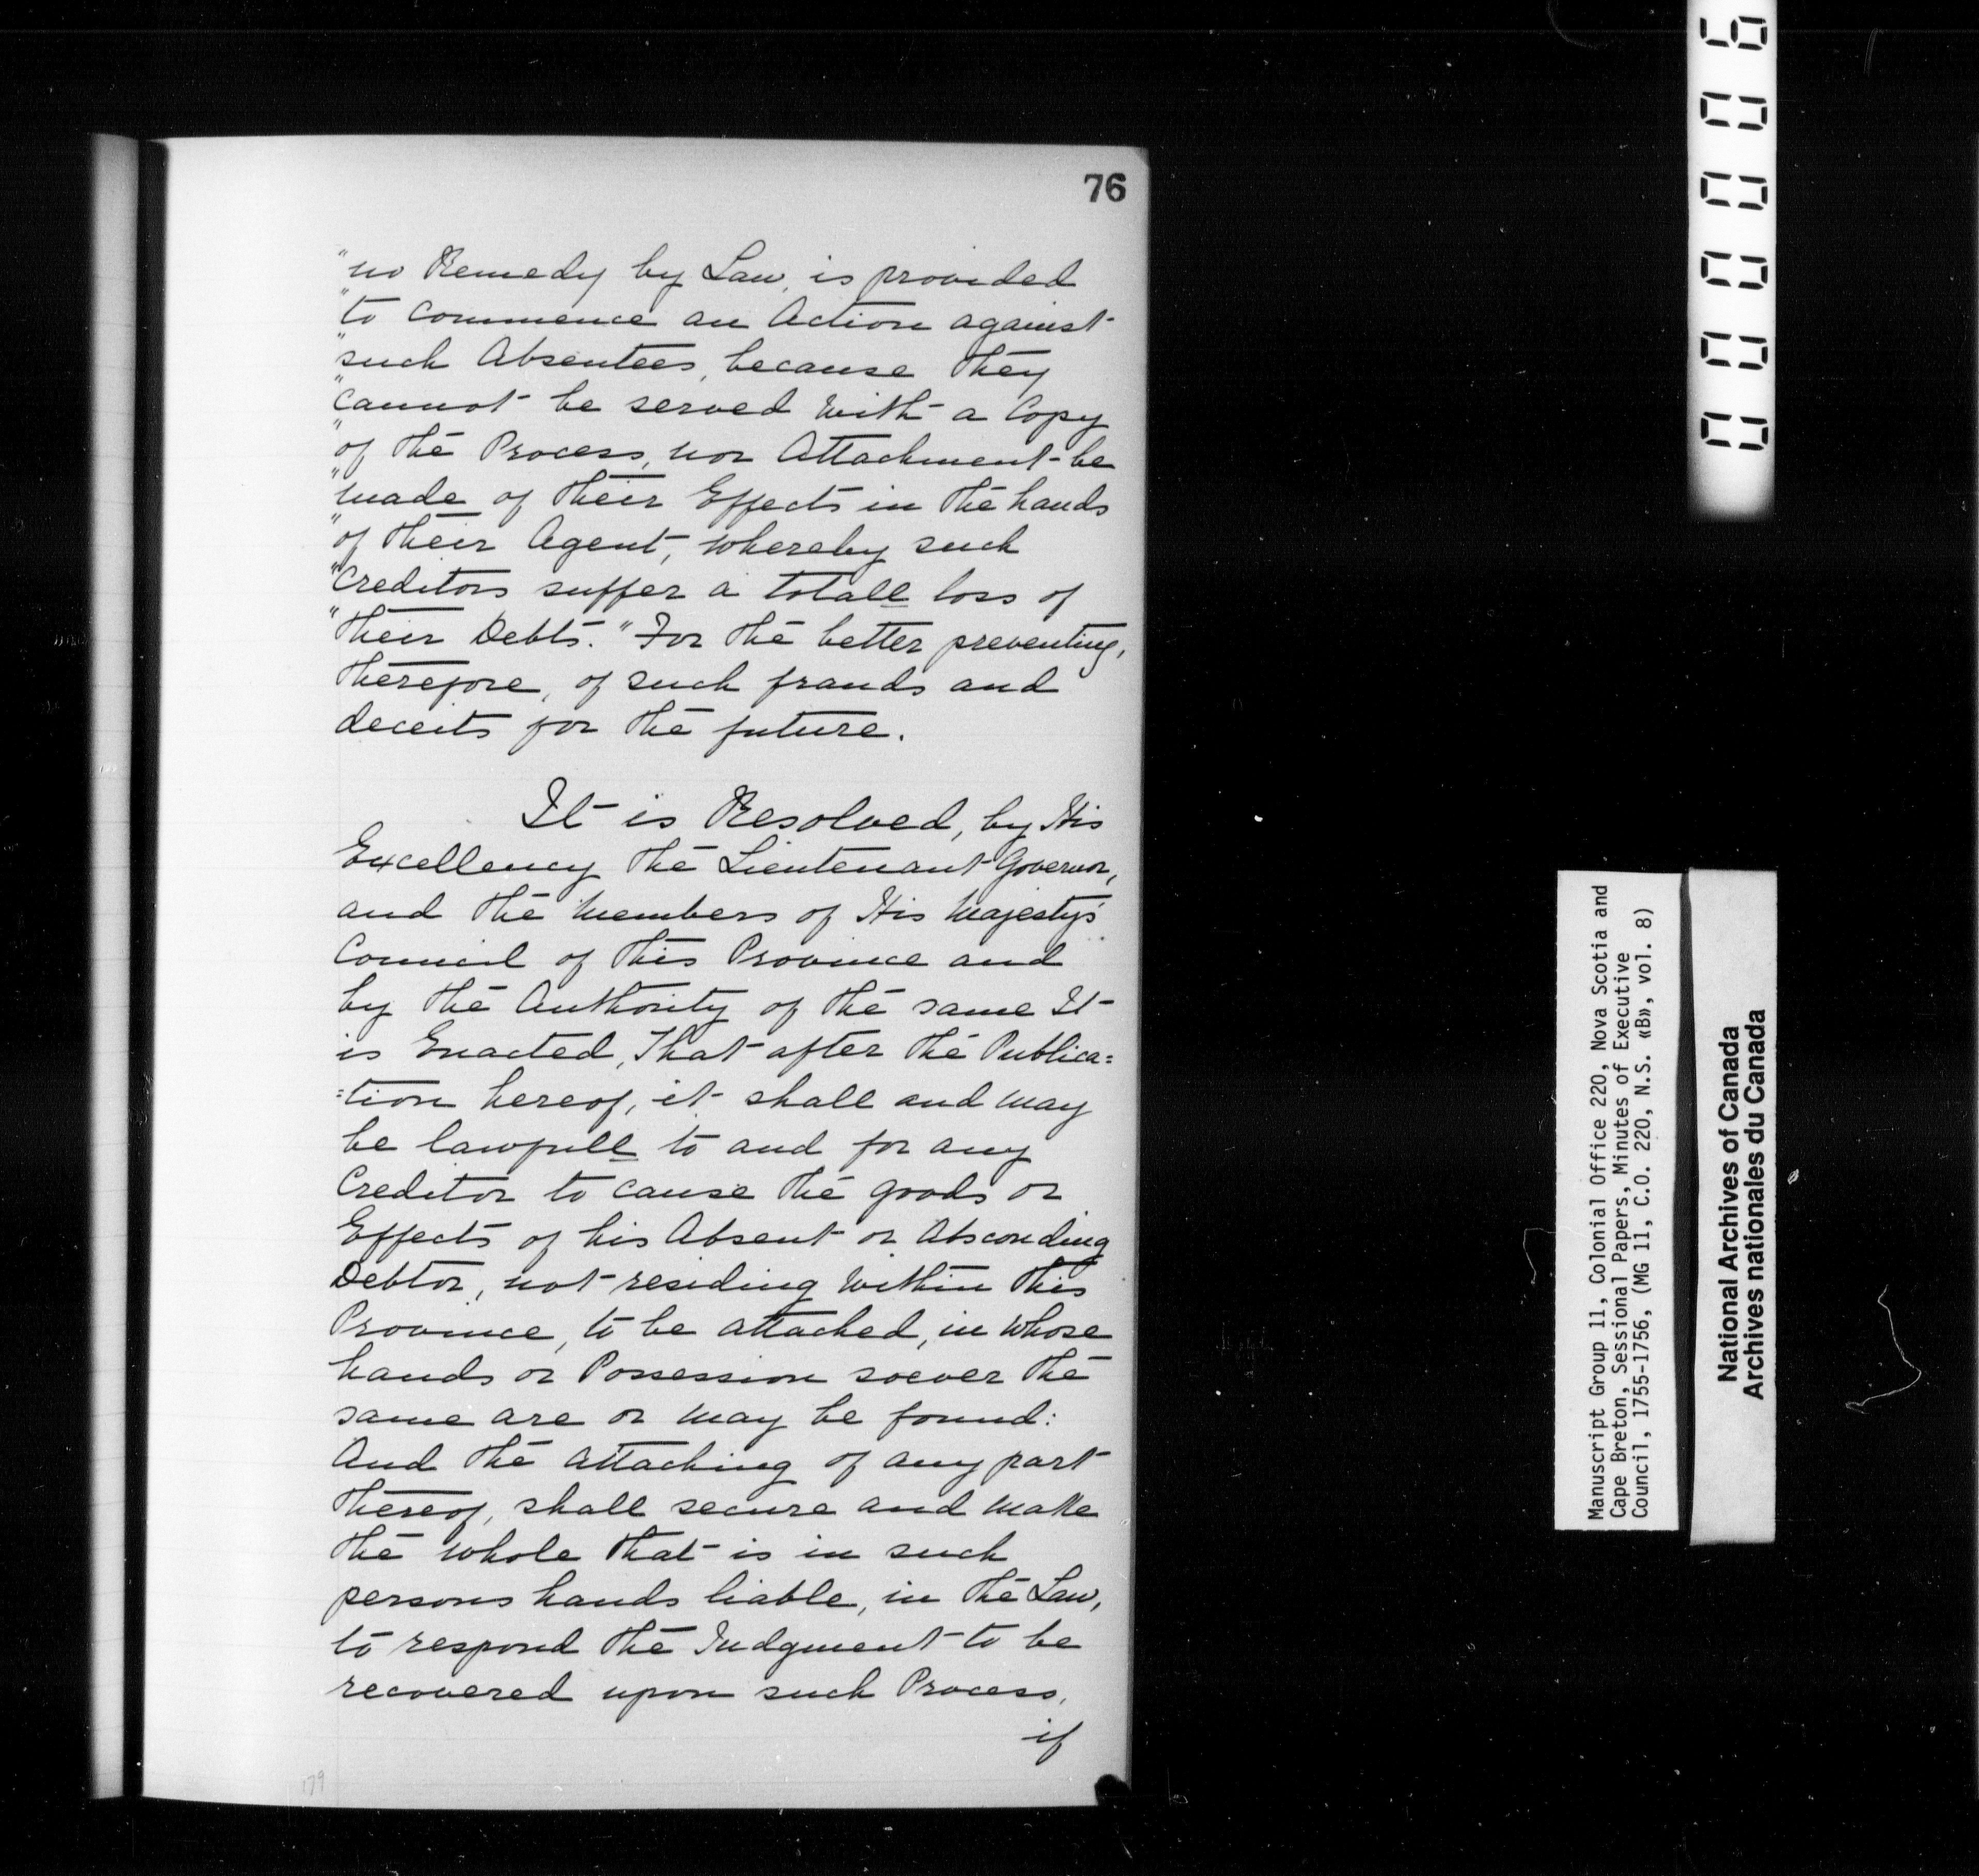 76
"no Remedy by Law, is provided
"to commence an Action against
"such Absentees, because they
"cannot be served with a Copy
"of the Process, nor Attachment be
"made of their Effects in the hands
"of their Agent, whereby such
"Creditors suffer a totall loss of
"their Debts." For the better preventing,
therefore, of such frauds and
deceits for the future.
It is Resolved, by His
Excellency the Lieutenant Governor,
and the Members of His Majesty's
Council of this Province and
by the Authority of the same It
is Enacted, That after the Publica=
=tion hereof, it shall and may
be lawfull to and for any
Creditor to cause the goods or
Effects of his Absent or Absconding
Debtor, not residing within this
Province, to be attached, in whose
hands or Possession soever the
same are or may be found:
And the attaching of any part
thereof, shall secure and make
the whole that is in such
persons hands liable, in the Law,
to respond the Judgment to be
recovered upon such Process,
if
179
000006
Manuscript Group 11, Colonial Office 220, Nova Scotia and
Cape Breton, Sessional Papers, Minutes of Executive
Council, 1755-1756, (MG 11, C.O. 220, N.S. «B», vol. 8)
National Archives of Canada
Archives nationales du Canada